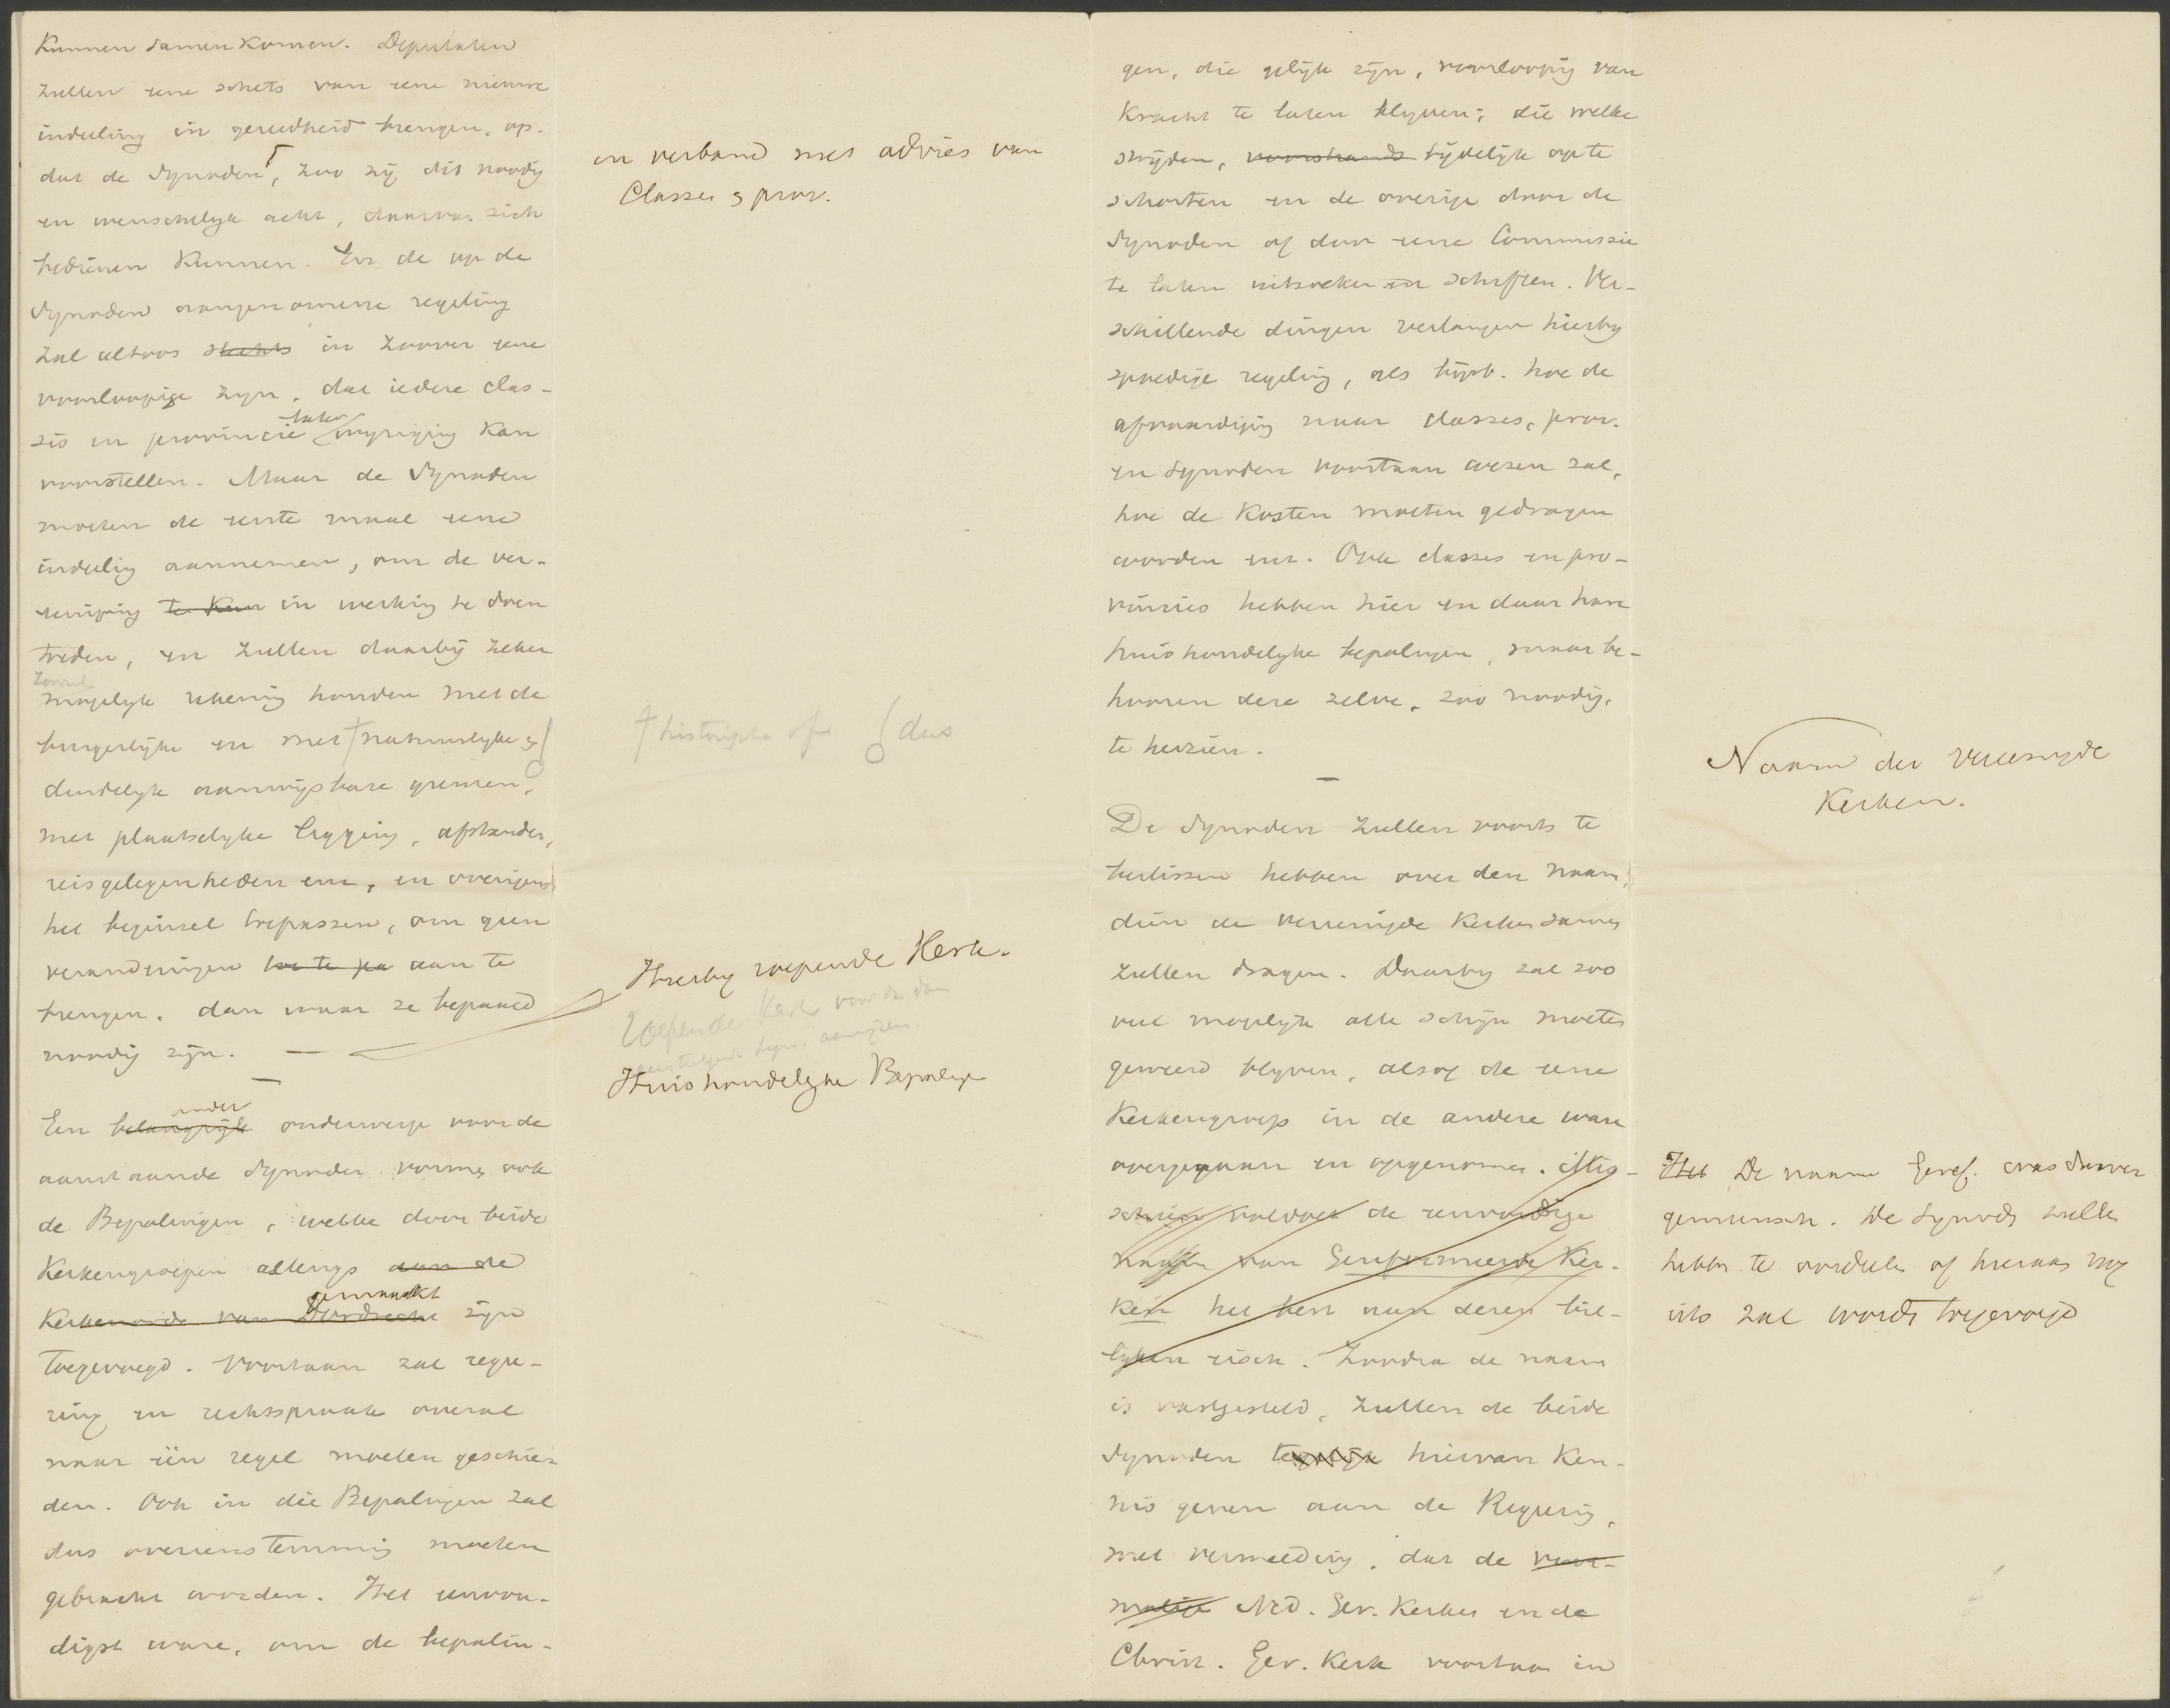 Kunnen samen komen. Deputaten
zullen eene schets van eene nieuwe
indeeling in gereedheid brengen, op-
dat de Synoden, zoo zij dit noodig
en wenschelijk acht, daarvan zich
bedienen kunnen. En de op de
Synoden aangenomene regeling
zal altoos slechts in zoover eene
voorloopige zijn, dat iedere clas-
sis en provincie later wijziging kan
voorstellen. Maar de Synoden
moeten de eerste maal eene
indeelig aannemen, om de ver-
eeniging te kun in werking te doen
treden, en zullen daarbij zeker
zooveel
mogelijk rekening houden met de
burgerlijke en met natuurlijke &
duidelijk aanwijsbare grenzen,
met plaatselijke ligging, afstanden,
reisgelegenheden enz, en overigens
het beginsel toepassen, om geen
veranderingen aan te
brengen, dan waar ze bepaald
noodig zijn. —
Een belangrijk ander onderwerp voor de
aanstaande Synoden vormen ook
de Bepalingen, welke door beide
Kerkengroepen allengs aan de
Kerkenorde van Dordrecht gemaakt zijn
toegevoegd. Voortaan zal rege-
ring en rechtspraak overal
naar één regel moeten geschie-
den. Ook in die Bepalingen zal
dus overeenstemming moeten
gebracht worden. Het eenvou-
digst ware, om de bepalin-
en verband met advies van
Classes & prov.
historische of dus
Hierbij roepende Kerk.
roepende Kerk voor de dan
eerstvolgende Syn. aanwijzen
Huishoudelijke Bepalingen
gen, die gelijk zijn, voorloopig van
kracht te laten blijven; die welke
strijden, voorshands tijdelijk op te
schorten en de overige door de
Synoden of door eene Commissie
te laten uitzoeken en schiften. Ver-
schillende dingen verlangen hierbij
spoedige regeling, als bijvb. hoe de
afvaardiging naar classes, prov.
en Synoden voortaan wezen zal,
hoe de kosten moeten gedragen
worden enz. Ook classes en pro-
vincies hebben hier en daar hare
huishoudelijke bepalingen, maar be-
hooren deze zelve, zoo noodig,
te herzien.
—
De Synoden zullen voorts te
beslissen hebben over den naam,
dien de vereenigde Kerken samen
zullen dragen. Daarbij zal zoo
veel mogelijk alle schijn moeten
geweerd blijven, alsof de eene
Kerkengroep in de andere ware
overgegaan en opgenomen. Mis-
schien voldoet de eenvoudige
naam van Gereformeerde Ker-
ken het best aan dezen bil-
lijken eisch. Zoodra de naam
is vastgesteld, zullen de beide
Synoden tegelijk hiervan ken-
nis geven aan de Regeering,
met vermelding, dat de voor-
malige Ned. Ger. Kerken en de
Christ. Ger. Kerk voortaan in
Naam der Vereenigde
Kerken.
Het De naam Geref. was daarvan
gemeensch. De Synode zullen
hebben te oordeelen of hieraan nog
iets zal worden toegevoegd